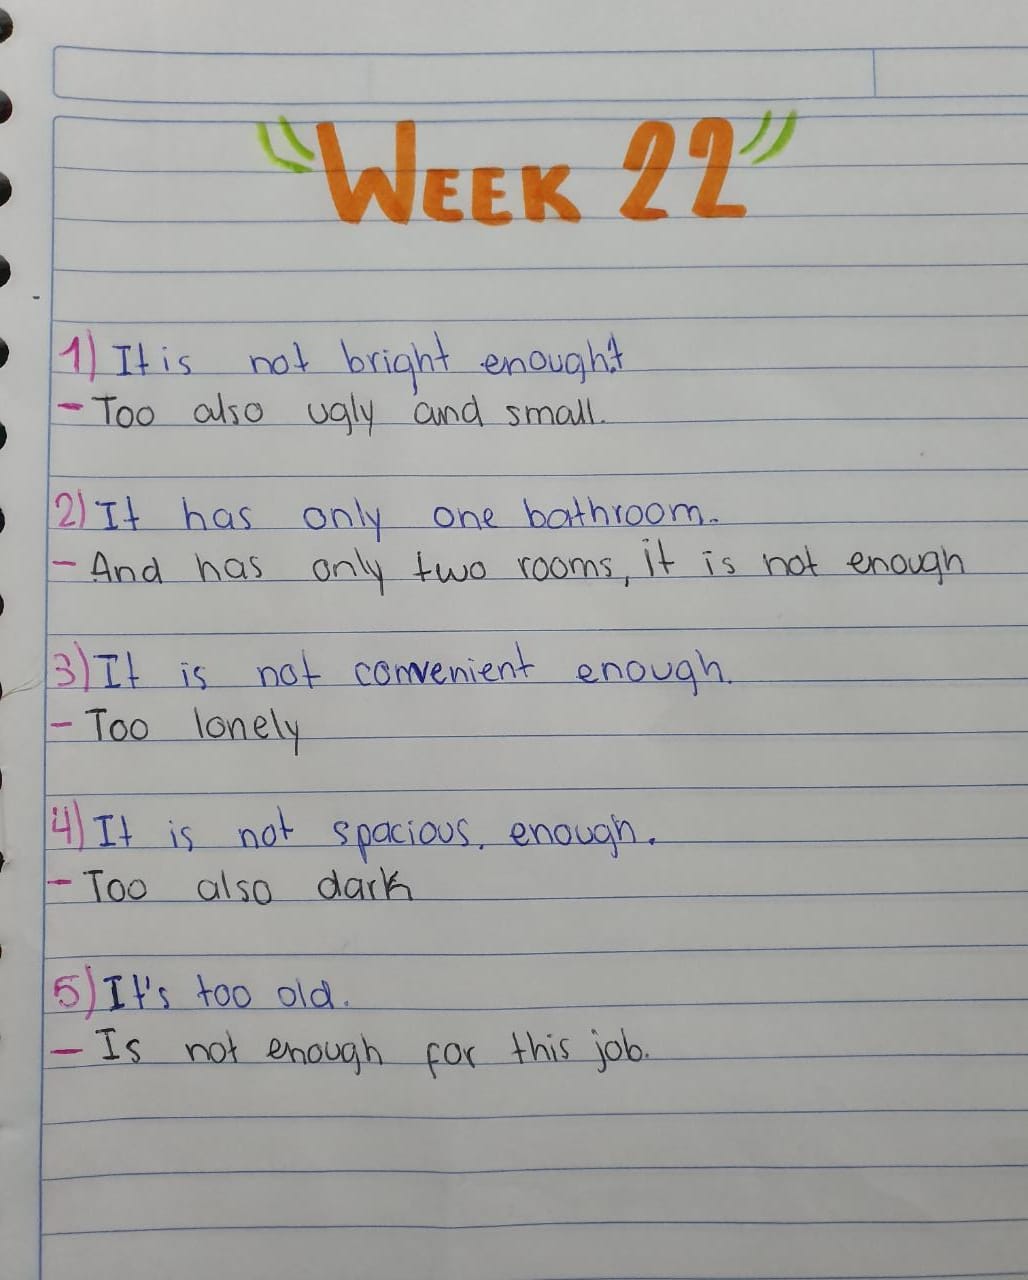 "WEEK 22"
1) It is not bright enought
- Too also ugly and small.
2) It has only one bathroom.
- And has only two rooms, it is not enough
3) It is not convenient enough.
- Too lonely
4) It is not spacious. enough.
- Too also dark
5) It's too old.
- Is not enough for this job.